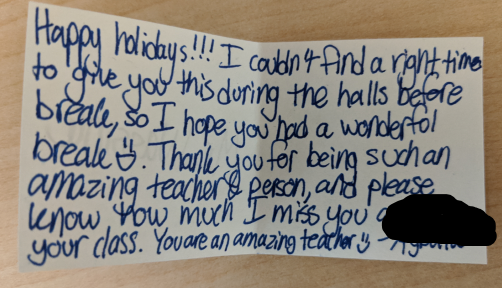 Happy holidays!!! I couldn't find a right time
to give you this during the halls before
break, so I hope you had a wonderful
break☺. Thank you for being such an
amazing teacher & person, and please
know how much I miss you
your class. You are an amazing teacher☺ -